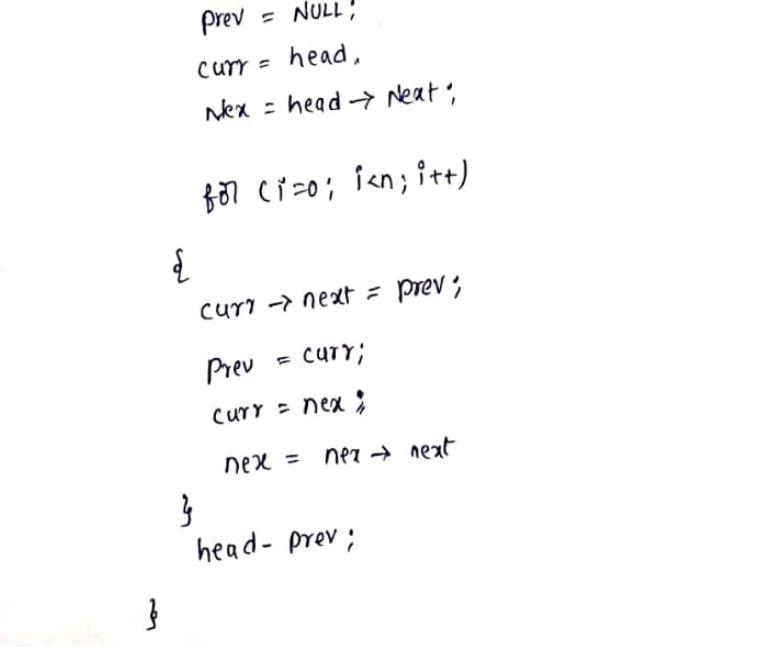 prev = NULL;
curr = head,
Nex = head → Next;
for (i=0; i<n; i++)
{
curr → next = prev;
prev = curr;
curr = nex;
nex = nex → next
}
head - prev;
}